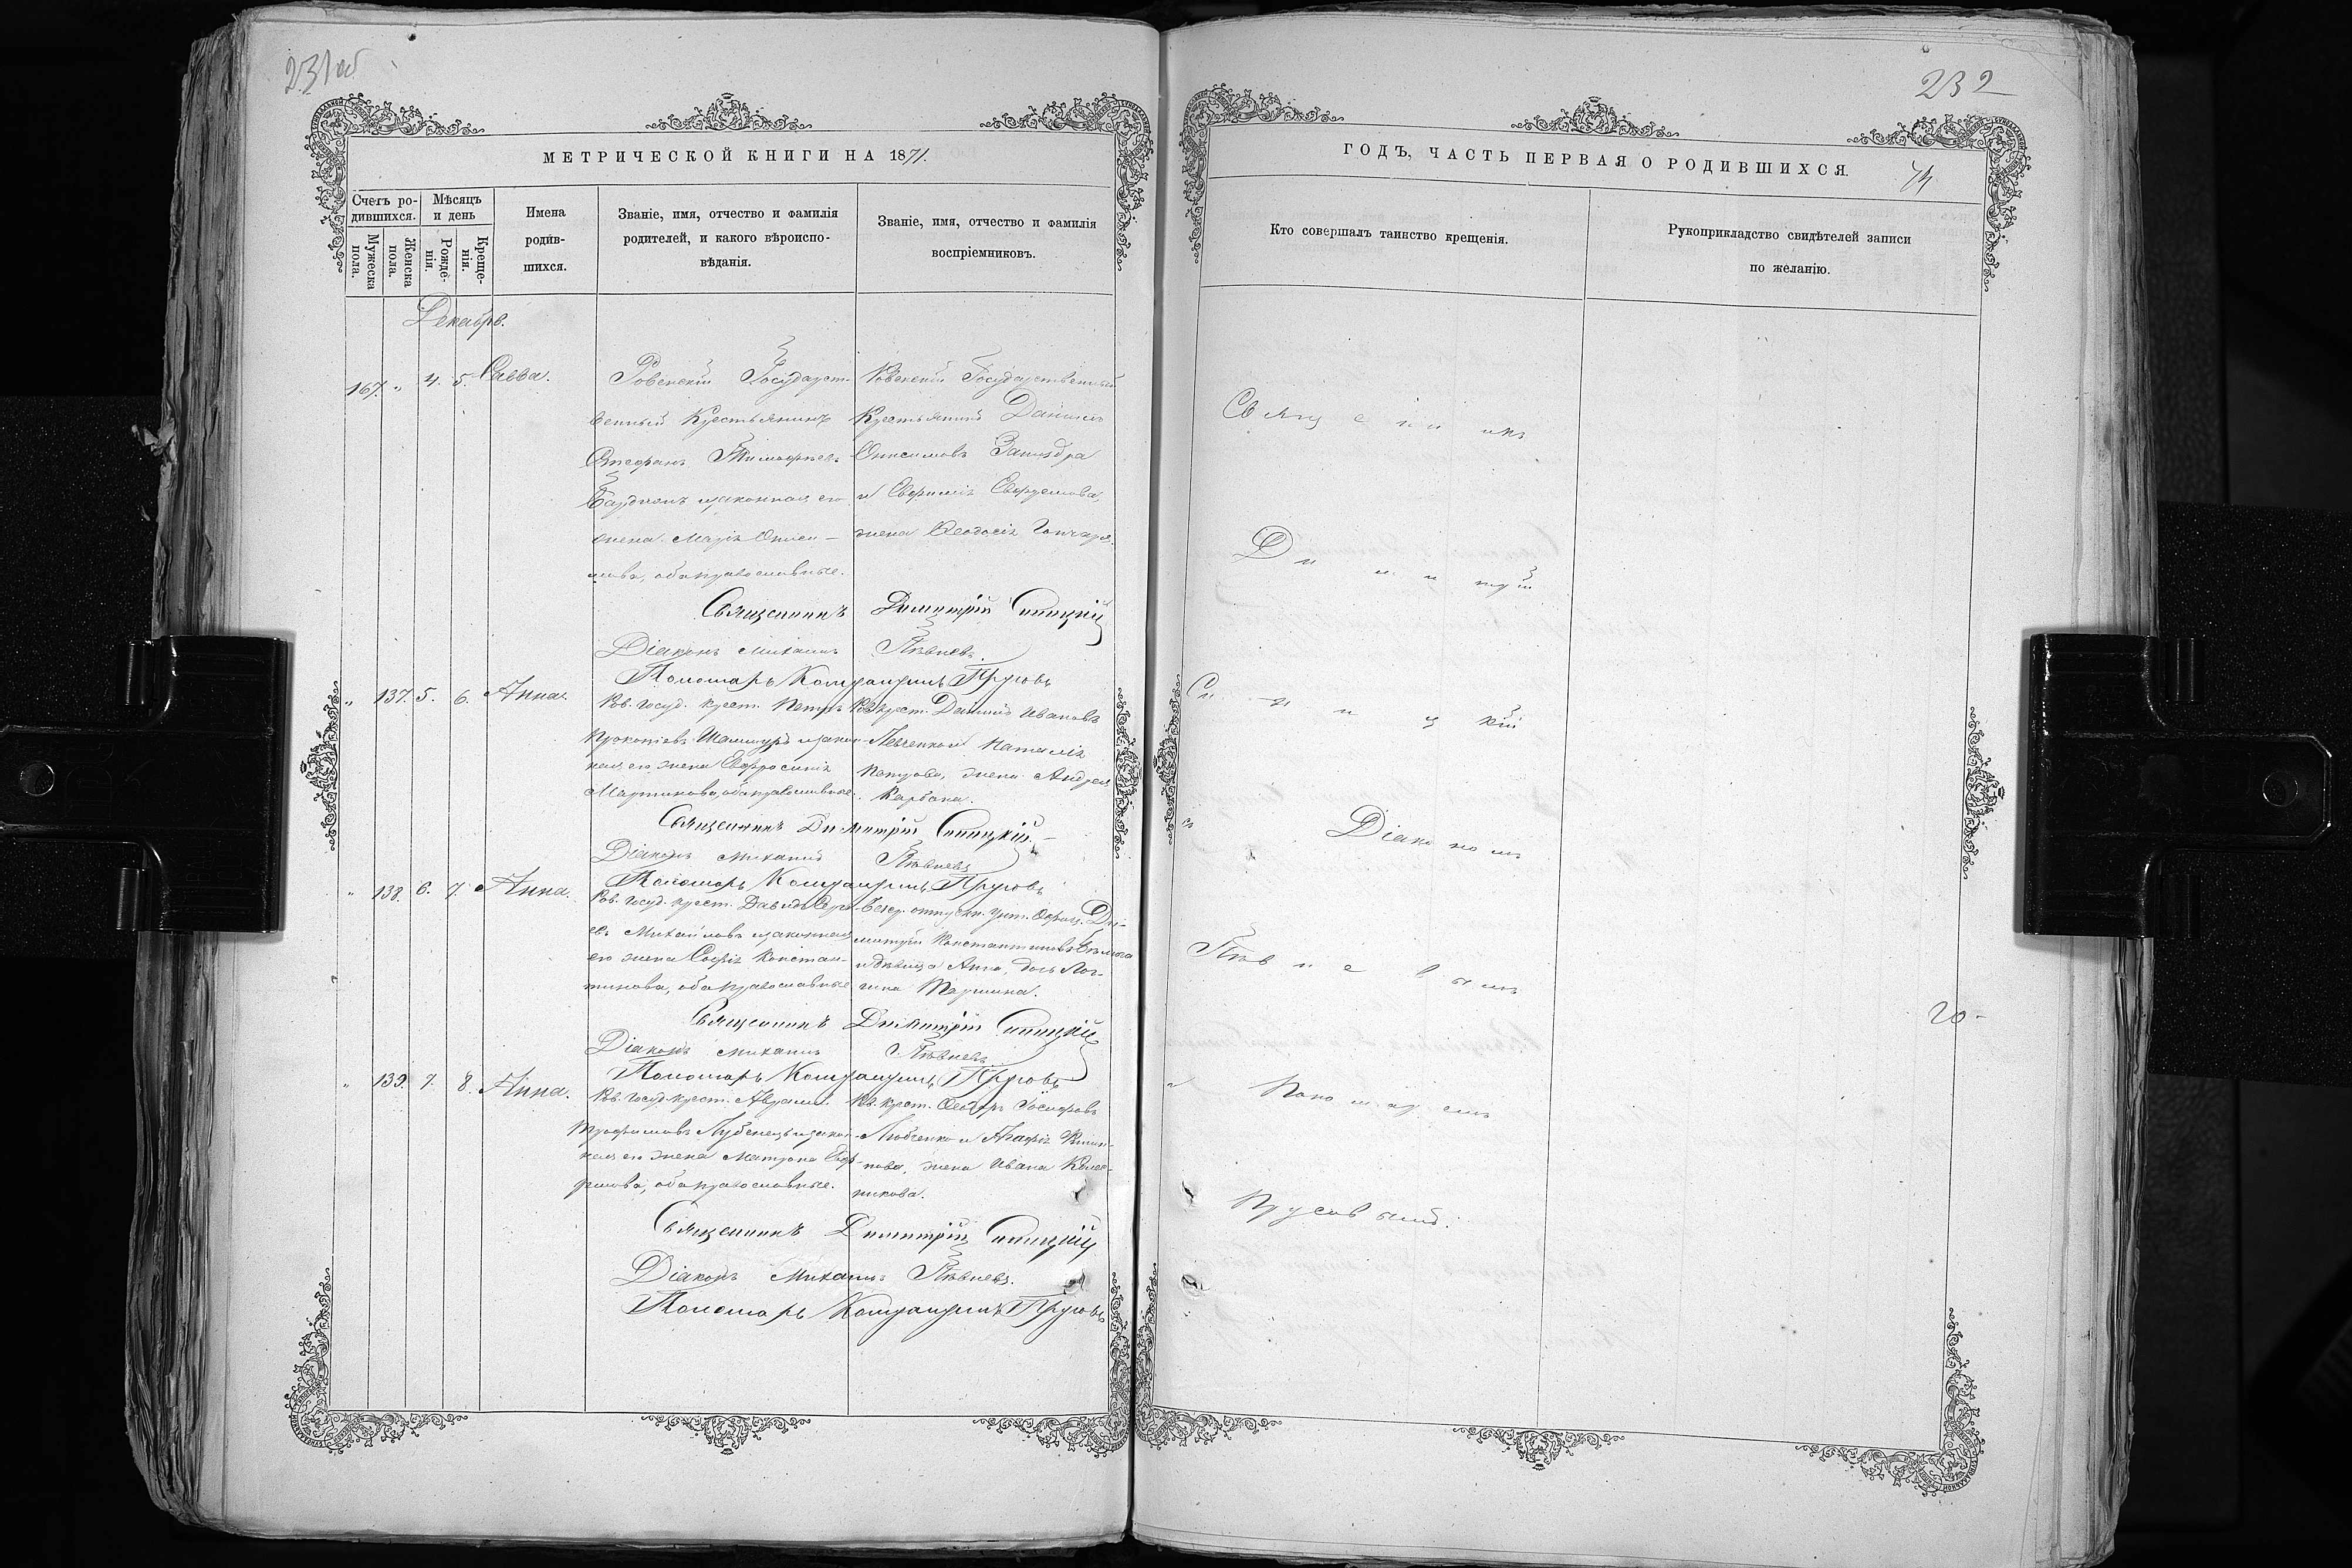 231об
МЕТРИЧЕСКОЙ КНИГИ НА 1871.
Счетъ родившихся.
Мужеска пола.
Женска пола.
Мѣсяцъ и день
Рожденія.
Крещенія.
Имена родившихся.
Званіе, имя, отчество и фамилія
родителей, и какого вѣроиспо-
вѣданія.
Званіе, имя, отчество и фамилія
воспріемниковъ.
Декабрь.
167. " 4. 5. Савва.
Ровенскій Государст-
венный Крестьянинъ
Стефанъ Тимофѣевъ
изаконная его
жена Марія Ониси-
мова, оба православные.
Ровенскій Государственный
Крестьянинъ Даніилъ
Онисимовъ
и Евфимія
жена Ѳеодосія Гончара.
Священникъ Димитрій Синицкій
Діаконъ Михаилъ Пѣвневъ.
Пономарь Прусовъ
" 137. 5. 6. Анна.
Ров. госуд. крест. Петръ
Прокопіевъ изакон-
ная его жена Евфросинія
Мартинова, оба православные.
Ров. крест. Даніилъ Ивановъ
Левченко и Наталія
Петрова, жена Андрея
Карбана.
Священникъ Димитрій Синицкій.
Діаконъ Михаилъ Пѣвневъ
Пономарь Прусовъ
" 138. 6. 7. Анна.
Ров. госуд. крест. Давидъ
евъ Михайловъ изаконная
его жена Софія Констан-
тинова, оба православные
унт. Офиц. Ди-
митрій Константиновъ
и дѣвица Анна, дочь Лон-
гина
Священникъ Димитрій Синицкій
Діаконъ Михаилъ Пѣвневъ
Пономарь Прусовъ
" 139. 7. 8. Анна.
Ров. госуд. крест. Авраамъ
Трофимовъ Лубенецъ изакон-
ная его жена Матрона
фимова, оба православные.
Ров. крест. Ѳеодоръ Іосифовъ
Любченко и Агафія
нова, жена Ивана Колес-
никова.
Священникъ Димитрій Синицкій
Діаконъ Михаилъ Пѣвневъ.
Пономарь Прусовъ
232
ГОДЪ, ЧАСТЬ ПЕРВАЯ О РОДИВШИХСЯ.
Кто совершалъ таинство крещенія.
Рукоприкладство свидѣтелей записи
по желанію.
Священникъ
Димитрій
Синицкій
съ Діакономъ
Пѣвневымъ
и Пономаремъ
Прусовымъ.